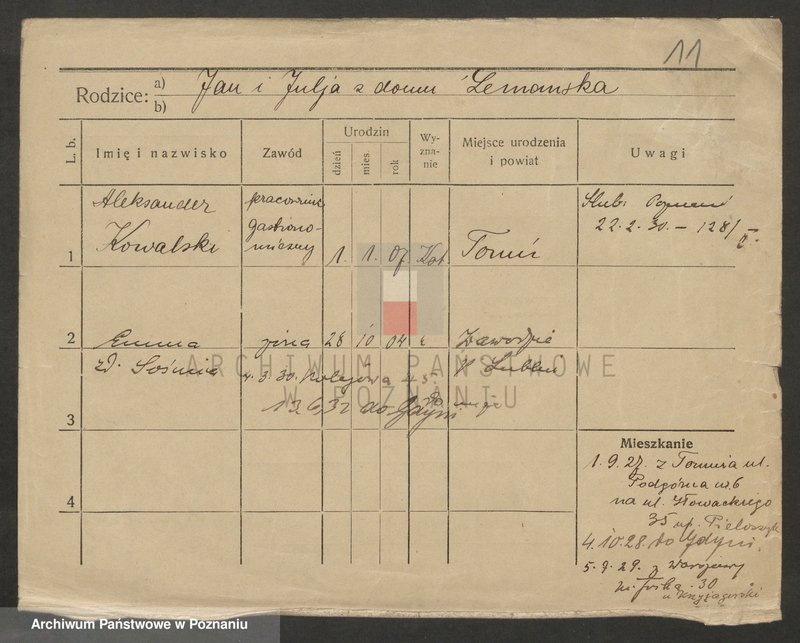 11
Rodzice: a) Jan i Julja z domu Lemańska
b)
L. b.
Imię i nazwisko
Zawód
Urodzin
dzień
mies.
rok
Wy-
zna-
nie
Miejsce urodzenia
i powiat
Uwagi
1
Aleksander
Kowalski
pracownik
gastrono-
miczny
1. 1. 07 Kat
Toruń
Ślub: Poznań
22. 2. 30. – 128/
2
Emma
zd. Sośnia
żona
26 10 04
Zawodzie
Lublin
4. 3. 30. Kolejowa 45.
3
13.6.32 do Gdyni
4
Mieszkanie
1. 9. 27. z Torunia ul.
Podgórna 6
na ul. Słowackiego
35
4.10.28. do Gdyni.
5. 9. 29. z Warszawy
30
u
ARCHIWUM PAŃSTWOWE
W POZNANIU
Archiwum Państwowe w Poznaniu